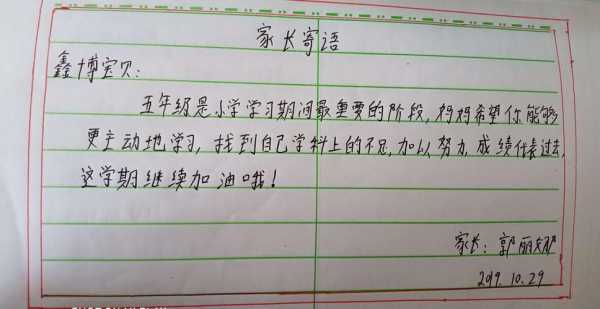 家长寄语
鑫博宝贝:
五年级是小学学习期间最重要的阶段,妈妈希望你能够
更主动地学习,找到自己学科上的不足,加以努力,成绩代表过去,
这学期继续加油哦!
家长:郭丽娜
2019.10.29